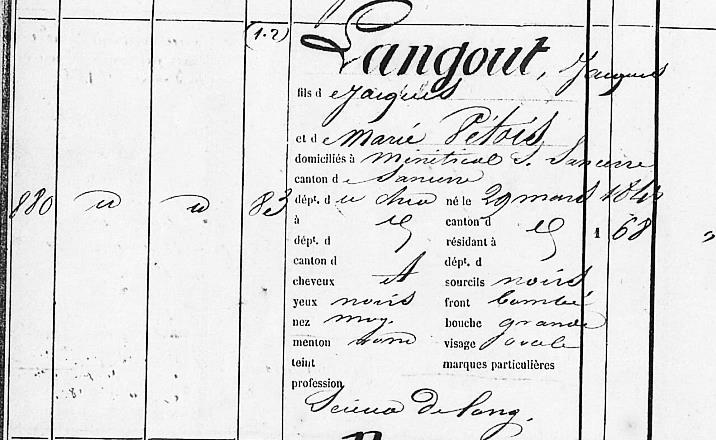 (1.2)
Langout, Jacques
fils d e Jacques
et d e Marie Petois
domiciliés à Ménétréol S. Sancerre
canton d e Sancerre
880 83 dépt. d u cher né le 29 mars 184
à canton d
dépt. d résidant à 1 68
canton d dépt. d
cheveux et sourcils noirs
yeux noirs front bombé
nez moy. bouche grande
menton rond visage ovale
teint marques particulières
profession
Scieur de long.